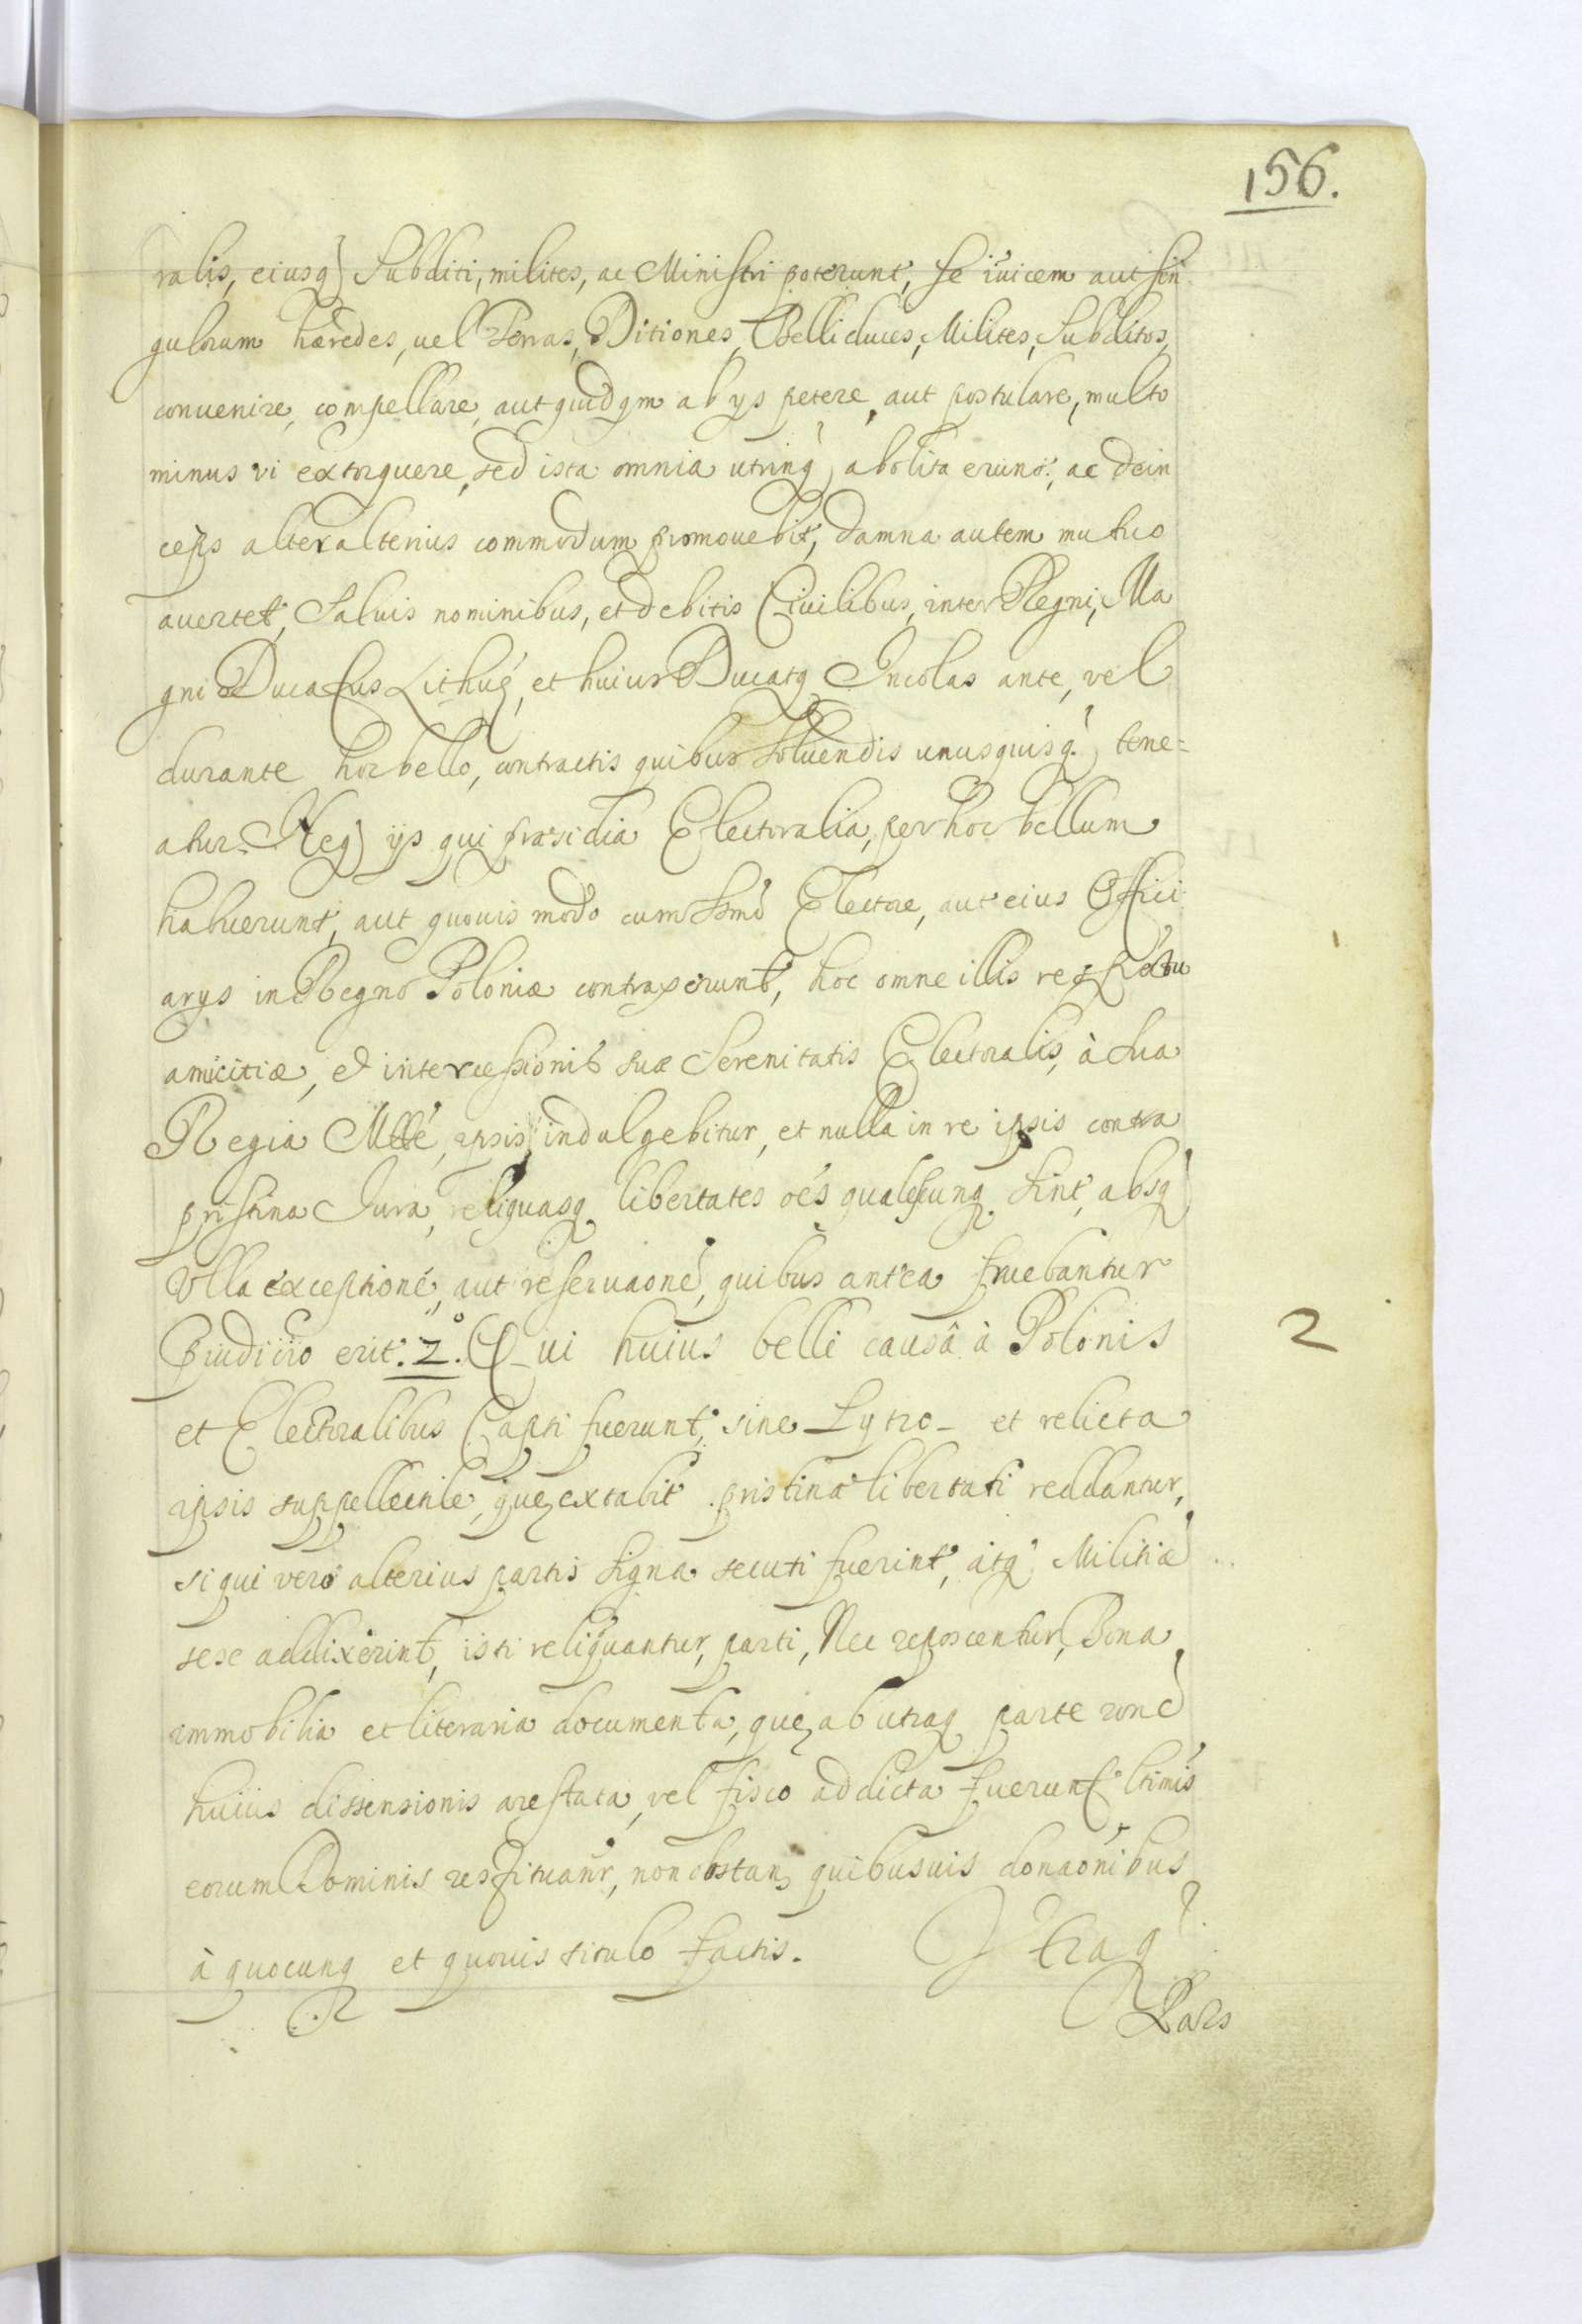 156.
ralis, eiusq, Subditi, milites, ac Ministri poterunt, se iuicem aut sin
gulorum hæredes, uel Terras, Ditiones, Belliduces, Milites, Subditos,
conuenire, compellare, aut quidqm ab ys petere, aut postulare, multo
minus vi extorquere, sed ista omnia utrinq, abolita erunt, ac dein
ceps alter alterius commodum promouebit, damna autem mutuo
auertet, Saluis nominibus, et debitis Ciuilibus, inter Regni, Ma
gni Ducatus Lithuę, et huius Ducatq Incolas ante, vel
durante hoc bello, contractis quibus soluendis unusquisq, tene=
atur. Neq, ijs qui præsidia Electoralia, per hoc bellum
habuerunt, aut quouis modo cum Ssmo Electore, aut eius Offici
arys in Regno Poloniæ contraxerunt, hoc omne illis respectu
amicitiæ, et intercessionis suæ Serenitatis Electoralis, à sua
Regia Mtte, ipsis indulgebitur, et nulla in re ipsis contra
pristina Iura, reliquasq libertates oés qualescunq sint, absq
Vlla exceptioné, aut reseruaoné, quibus antea fruebantur
Præiudicio erit. 2º. Qui huius belli causâ à Polonis
2
et Electoralibus Capti fuerunt, sine Lytro- et relicta
ipsis suppellectile, quę extabit pristinæ libertati reddantur,
si qui vero alterius partis signa secuti fuerint, atq Militiæ
sese addixerint, isti reliquantur, parti, Nec reposcentur, Bona
immobilia et literaria documenta, quę ab utraq parte roné
huius dissensionis arestata, vel fisco addicta fuerunt ltimis
eorum Dominis restituant̃r, non obstan, quibusuis donaónibus
à quocunq et quouis titulo factis. Vtraq
Pars